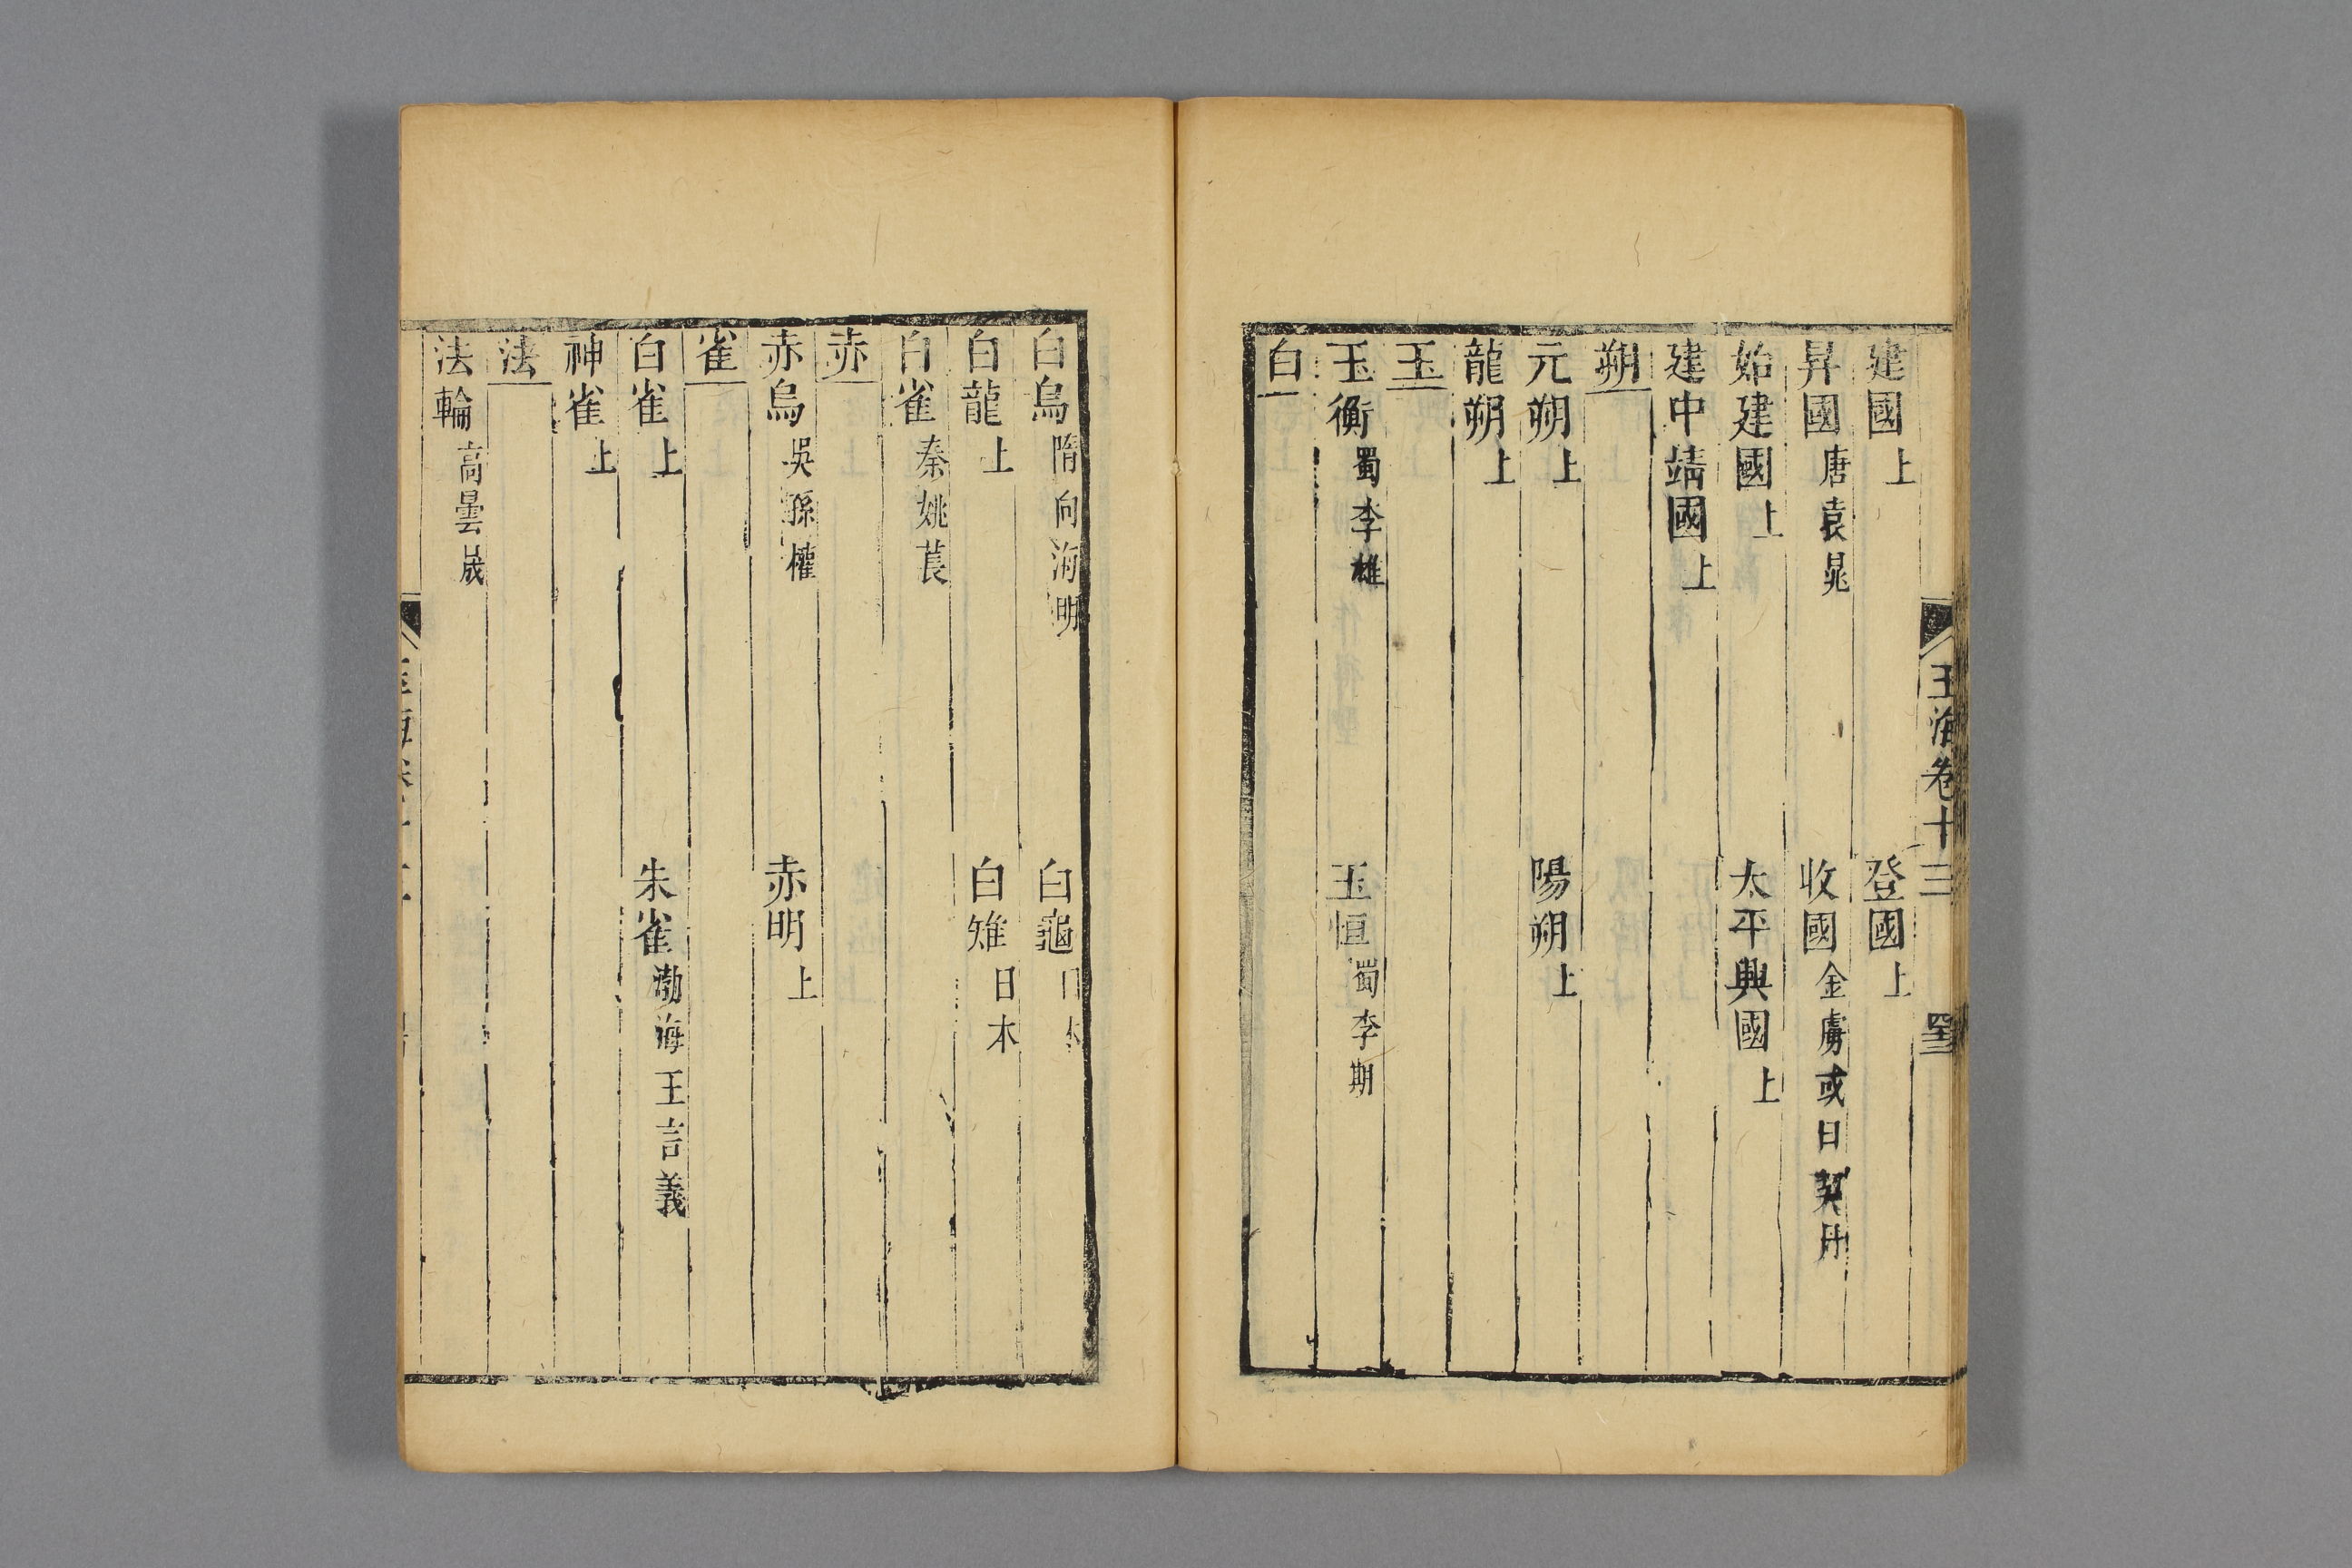 玉海卷十三
建國上 登國上
昇國唐袁晁 收國金虜或曰契丹
始建國上 太平興國上
建中靖國上
朔
元朔上 陽朔上
龍朔上
玉
玉衡蜀李雄 玉恒蜀李期
白
白烏隋向海明 白龜
白龍上 白雉日本
白雀秦姚萇
赤
赤烏吳孫權 赤明上
雀
白雀上 朱雀渤海王言義
神雀上
法
法輪高曇晟